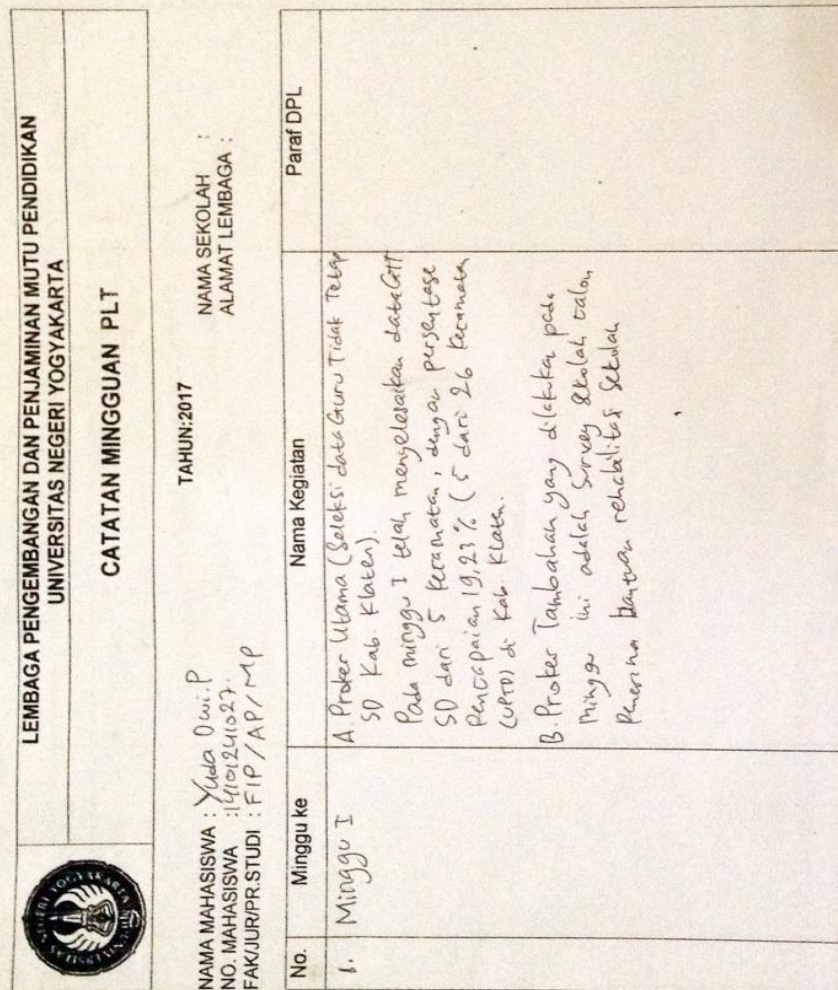 LEMBAGA PENGEMBANGAN DAN PENJAMINAN MUTU PENDIDIKAN
UNIVERSITAS NEGERI YOGYAKARTA
CATATAN MINGGUAN PLT
TAHUN:2017
NAMA MAHASISWA : Yuda Dwi.P
NO. MAHASISWA : 14101241027.
FAK/JUR/PR.STUDI : FIP/AP/MP
NAMA SEKOLAH :
ALAMAT LEMBAGA :
No. Minggu ke Nama Kegiatan Paraf DPL
1. Minggu I
A. Proker Utama (Seleksi data Guru Tidak Tetap
SD Kab. Klaten).
Pada minggu I telah menyelesaikan data GTT
SD dari 5 kecamatan, dengan persentase
Pencapaian 19,23% (5 dari 26 kecamatan
(UPTD) di Kab. Klaten.
B. Proker Tambahan yang dilakukan pada
minggu ini adalah survey sekolah calon
Penerima bantuan rehabilitasi Sekolah